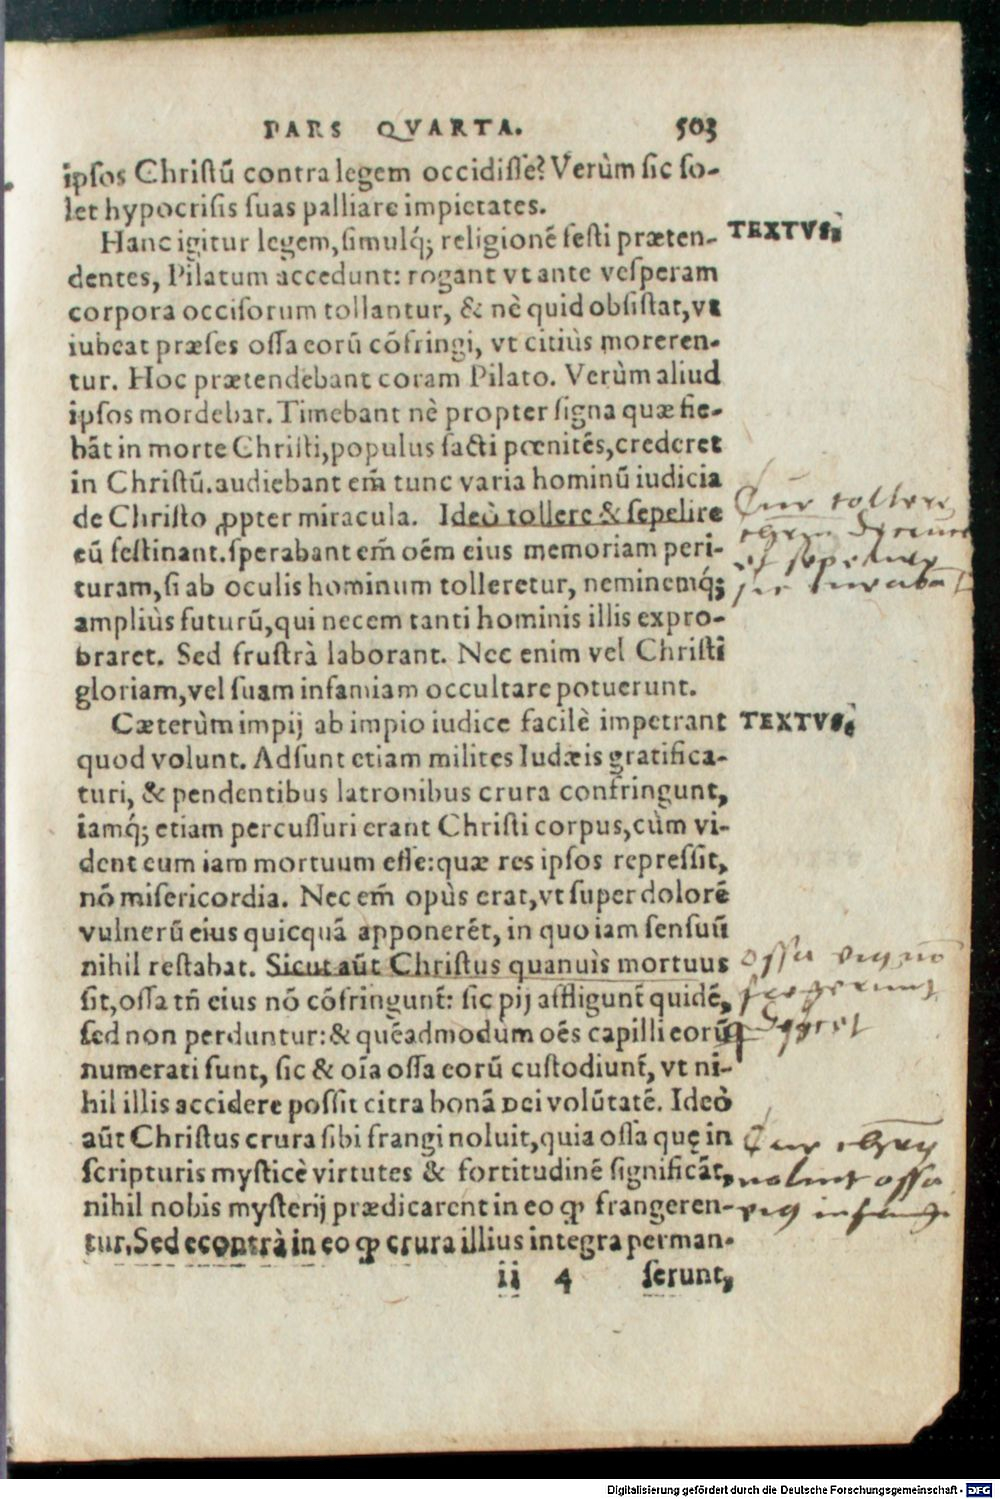 PARS QVARTA. 503
ipſos Christũ contra legem occidiſſe? Verùm ſic ſo-
let hypocriſis ſuas palliare impietates.
Hanc igitur legem, ſimulq́; religionẽ feſti præten-
TEXTVS.
dentes, Pilatum accedunt: rogant vt ante veſperam
corpora occiſorum tollantur, & nè quid obſiſtat, vt
iubeat præſes oſſa eorũ cõfringi, vt citiùs moreren-
tur. Hoc prætendebant coram Pilato. Verùm aliud
ipſos mordebat. Timebant nè propter ſigna quæ fie-
bãt in morte Chriſti, populus facti pœnitẽs, crederet
in Chriſtũ. audiebant em̃ tunc varia hominũ iudicia
de Chriſto ꝓpter miracula. Ideò tollere & ſepelire
eũ feſtinant. ſperabant em̃ oẽm eius memoriam peri-
turam, ſi ab oculis hominum tolleretur, neminemq́;
ampliùs futurũ, qui necem tanti hominis illis expro-
braret. Sed fruſtrà laborant. Nec enim vel Chriſti
gloriam, vel ſuam infamiam occultare potuerunt.
Cæterùm impij ab impio iudice facilè impetrant
TEXTVS.
quod volunt. Adſunt etiam milites Iudæis gratifica-
turi, & pendentibus latronibus crura confringunt,
iamq́; etiam percuſſuri erant Chriſti corpus, cùm vi-
dent eum iam mortuum eſſe: quæ res ipſos repreſſit,
nõ miſericordia. Nec em̃ opùs erat, vt ſuper dolorẽ
vulnerũ eius quicquã apponerẽt, in quo iam ſenſuũ
nihil reſtabat. Sicut aũt Chriſtus quanuìs mortuus
ſit, oſſa tñ eius nõ cõfringunt̃: ſic pij affligunt̃ quidẽ,
ſed non perduntur: & quẽadmodùm oẽs capilli eorũ
numerati ſunt, ſic & oĩa oſſa eorũ cuſtodiunt̃, vt ni-
hil illis accidere poſſit citra bonã Dei volũtatẽ. Ideò
aũt Chriſtus crura ſibi frangi noluit, quia oſſa quę in
ſcripturis myſticè virtutes & fortitudinẽ ſignificãt,
nihil nobis myſterij prædicarent in eo ꝙ frangeren-
tur. Sed econtrà in eo ꝙ crura illius integra perman-
ii 4 ſerunt,
Cur tollere
oſſa
Cur
noluit oſſa
Digitalisierung gefördert durch die Deutsche Forschungsgemeinschaft - DFG